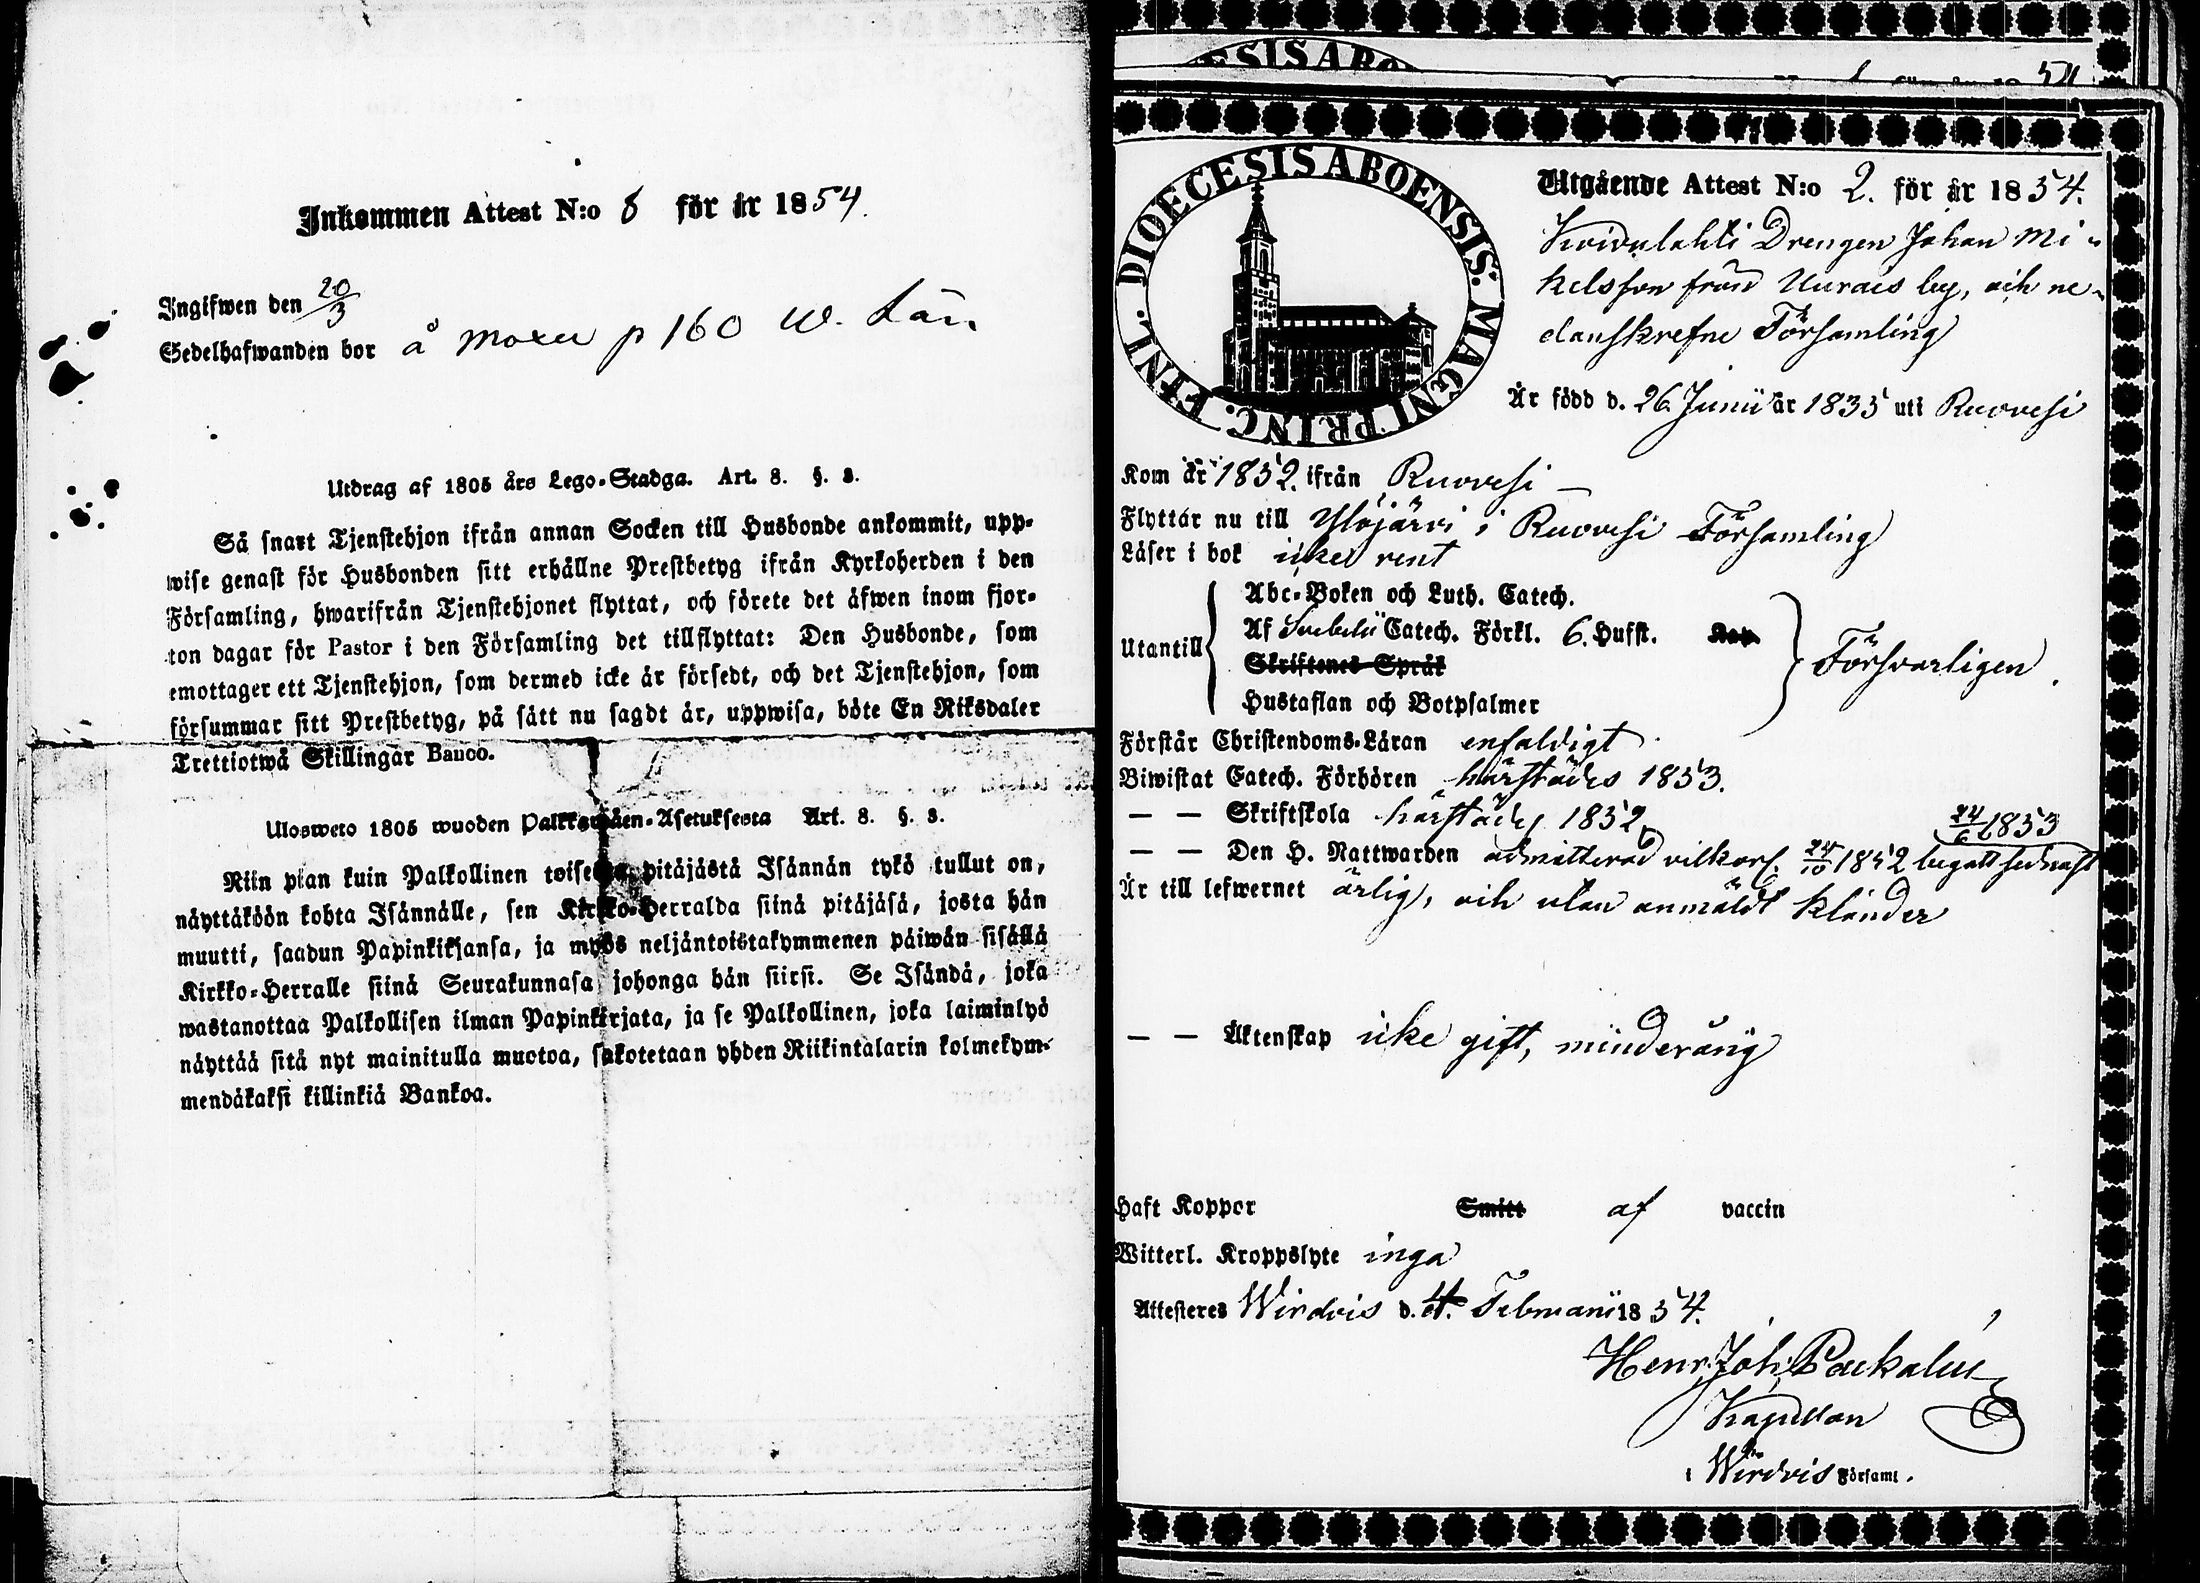 Inkommen Attest N:o 8 för år 1854.
Ingifwen den 20/3
Sedelhafwanden bor å Moxu p 160 W. Län
Utdrag af 1805 års Lego-Stadga. Art. 8. §. 3.
Så snart Tjenstehjon ifrån annan Socken till Husbonde ankommit, upp-
wise genast för Husbonden sitt erhållne Prestbetyg ifrån Kyrkoherden i den
Församling, hwarifrån Tjenstehjonet flyttat, och förete det äfwen inom fjor-
ton dagar för Pastor i den Församling det tillflyttat: Den Husbonde, som
emottager ett Tjenstehjon, som dermed icke är försedt, och det Tjenstehjon, som
försummar sitt Prestbetyg, på sätt nu sagdt är, uppwisa, böte En Riksdaler
Trettiotwå Skillingar Banco.
Ulosweto 1805 wuoden Palkkawäen-Asetuksesta Art. 8. §. 3.
Niin pian kuin Palkollinen toisesta pitäjästä Isännän tykö tullut on,
näyttäköön kohta Isännälle, sen Kirkko-Herralda siinä pitäjäsä, josta hän
muutti, saadun Papinkirjansa, ja myös neljäntoistakymmenen päiwän sisällä
Kirkko-Herralle siinä Seurakunnasa johonga hän siirsi. Se Isändä, joka
wastanottaa Palkollisen ilman Papinkirjata, ja se Palkollinen, joka laiminlyö
näyttää sitä nyt mainitulla muotoa, sakotetaan yhden Riikintalarin kolmekym-
mendäkaksi killinkiä Bankoa.
54
DIOECESIS ABOENSIS. MAGNI PRINC. FINL.
Utgående Attest N:o 2. för år 1854.
Koivulahti Drengen Johan Mi-
kelsson från Uurais by, och ne-
danskrefne Församling
Är född d. 26 Junii år 1835 uti Ruovesi
Kom år 1852. ifrån Ruovesi —
Flyttar nu till Ylöjärvi i Ruovesi Församling
Läser i bok icke rent
Utantill
Abc-Boken och Luth. Catech.
Af Svebelii Catech. Förkl. 6. Hufst. Kap.
Skriftenes Språk
Hustaflan och Botpsalmer
Försvarligen.
Förstår Christendoms-Läran enfaldigt.
Biwistat Catech. Förhören härstädes 1853.
— — Skriftskola härstädes 1852
— — Den H. Nattwarden admitterad vilkorl. 24/10 1852 begått sednast 24/6 1853
Är till lefwernet ärlig, och utan anmäldt klander
— — Äktenskap icke gift, minderårig
Haft Koppor Smitt af vaccin
Witterl. Kroppslyte inga
Attesteres Wirdois d. 4. Februarii 1854.
Henr. Joh. Packalén
Kapellan
i Wirdois Församl.